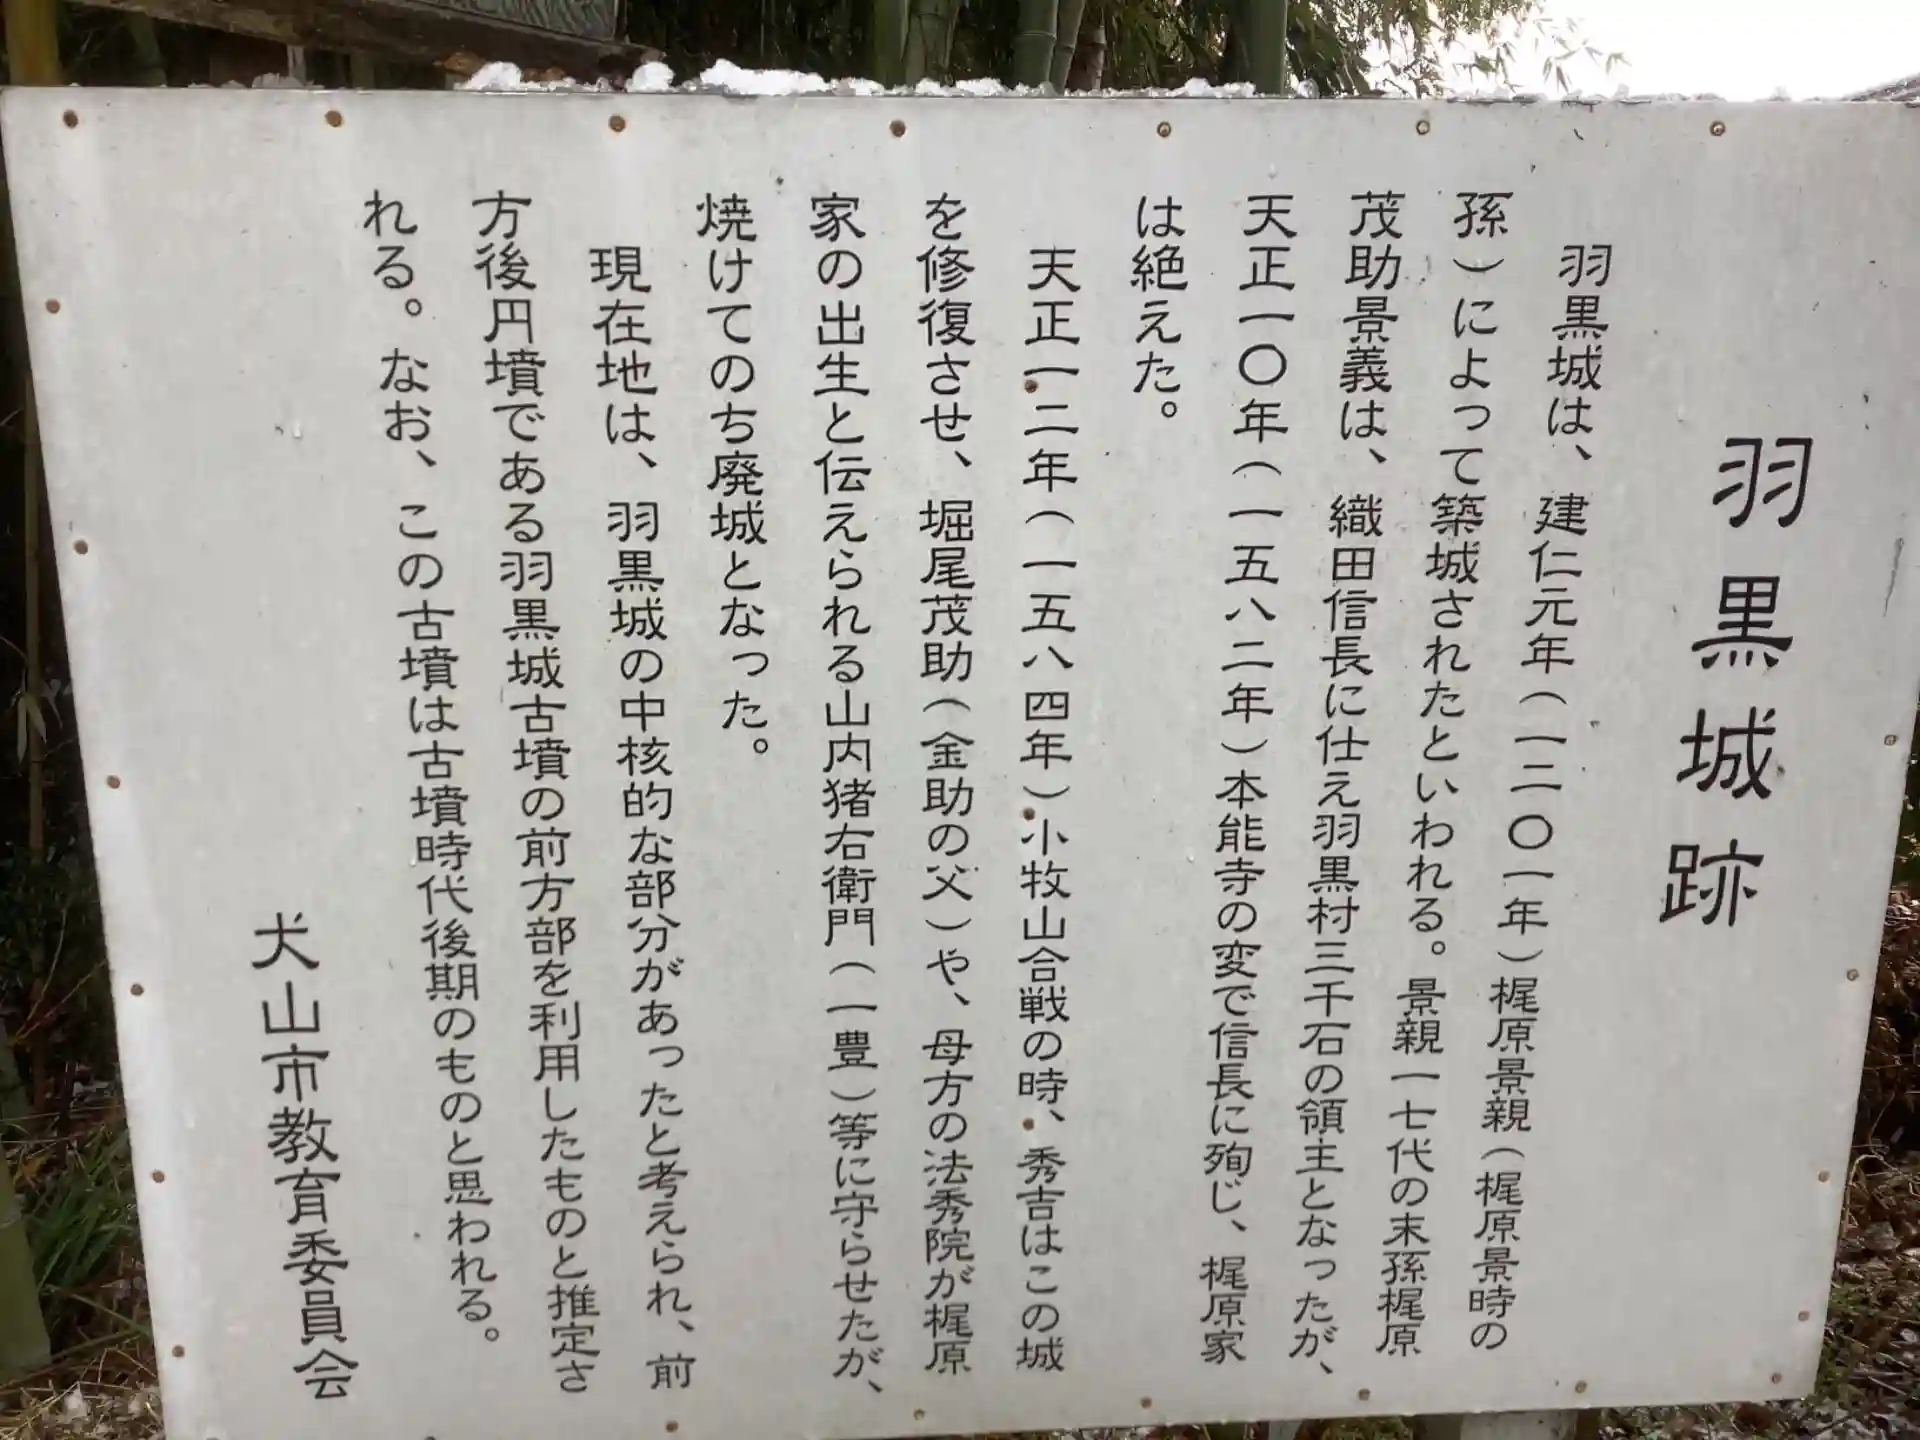 羽黒城跡
羽黒城は、建仁元年（一二〇一年）梶原景親（梶原景時の
孫）によって築城されたといわれる。景親一七代の末孫梶原
茂助景義は、織田信長に仕え羽黒村三千石の領主となったが、
天正一〇年（一五八二年）本能寺の変で信長に殉じ、梶原家
は絶えた。
天正一二年（一五八四年）小牧山合戦の時、秀吉はこの城
を修復させ、堀尾茂助（金助の父）や、母方の法秀院が梶原
家の出生と伝えられる山内猪右衛門（一豊）等に守らせたが、
焼けてのち廃城となった。
現在地は、羽黒城の中核的な部分があったと考えられ、前
方後円墳である羽黒城古墳の前方部を利用したものと推定さ
れる。なお、この古墳は古墳時代後期のものと思われる。
犬山市教育委員会